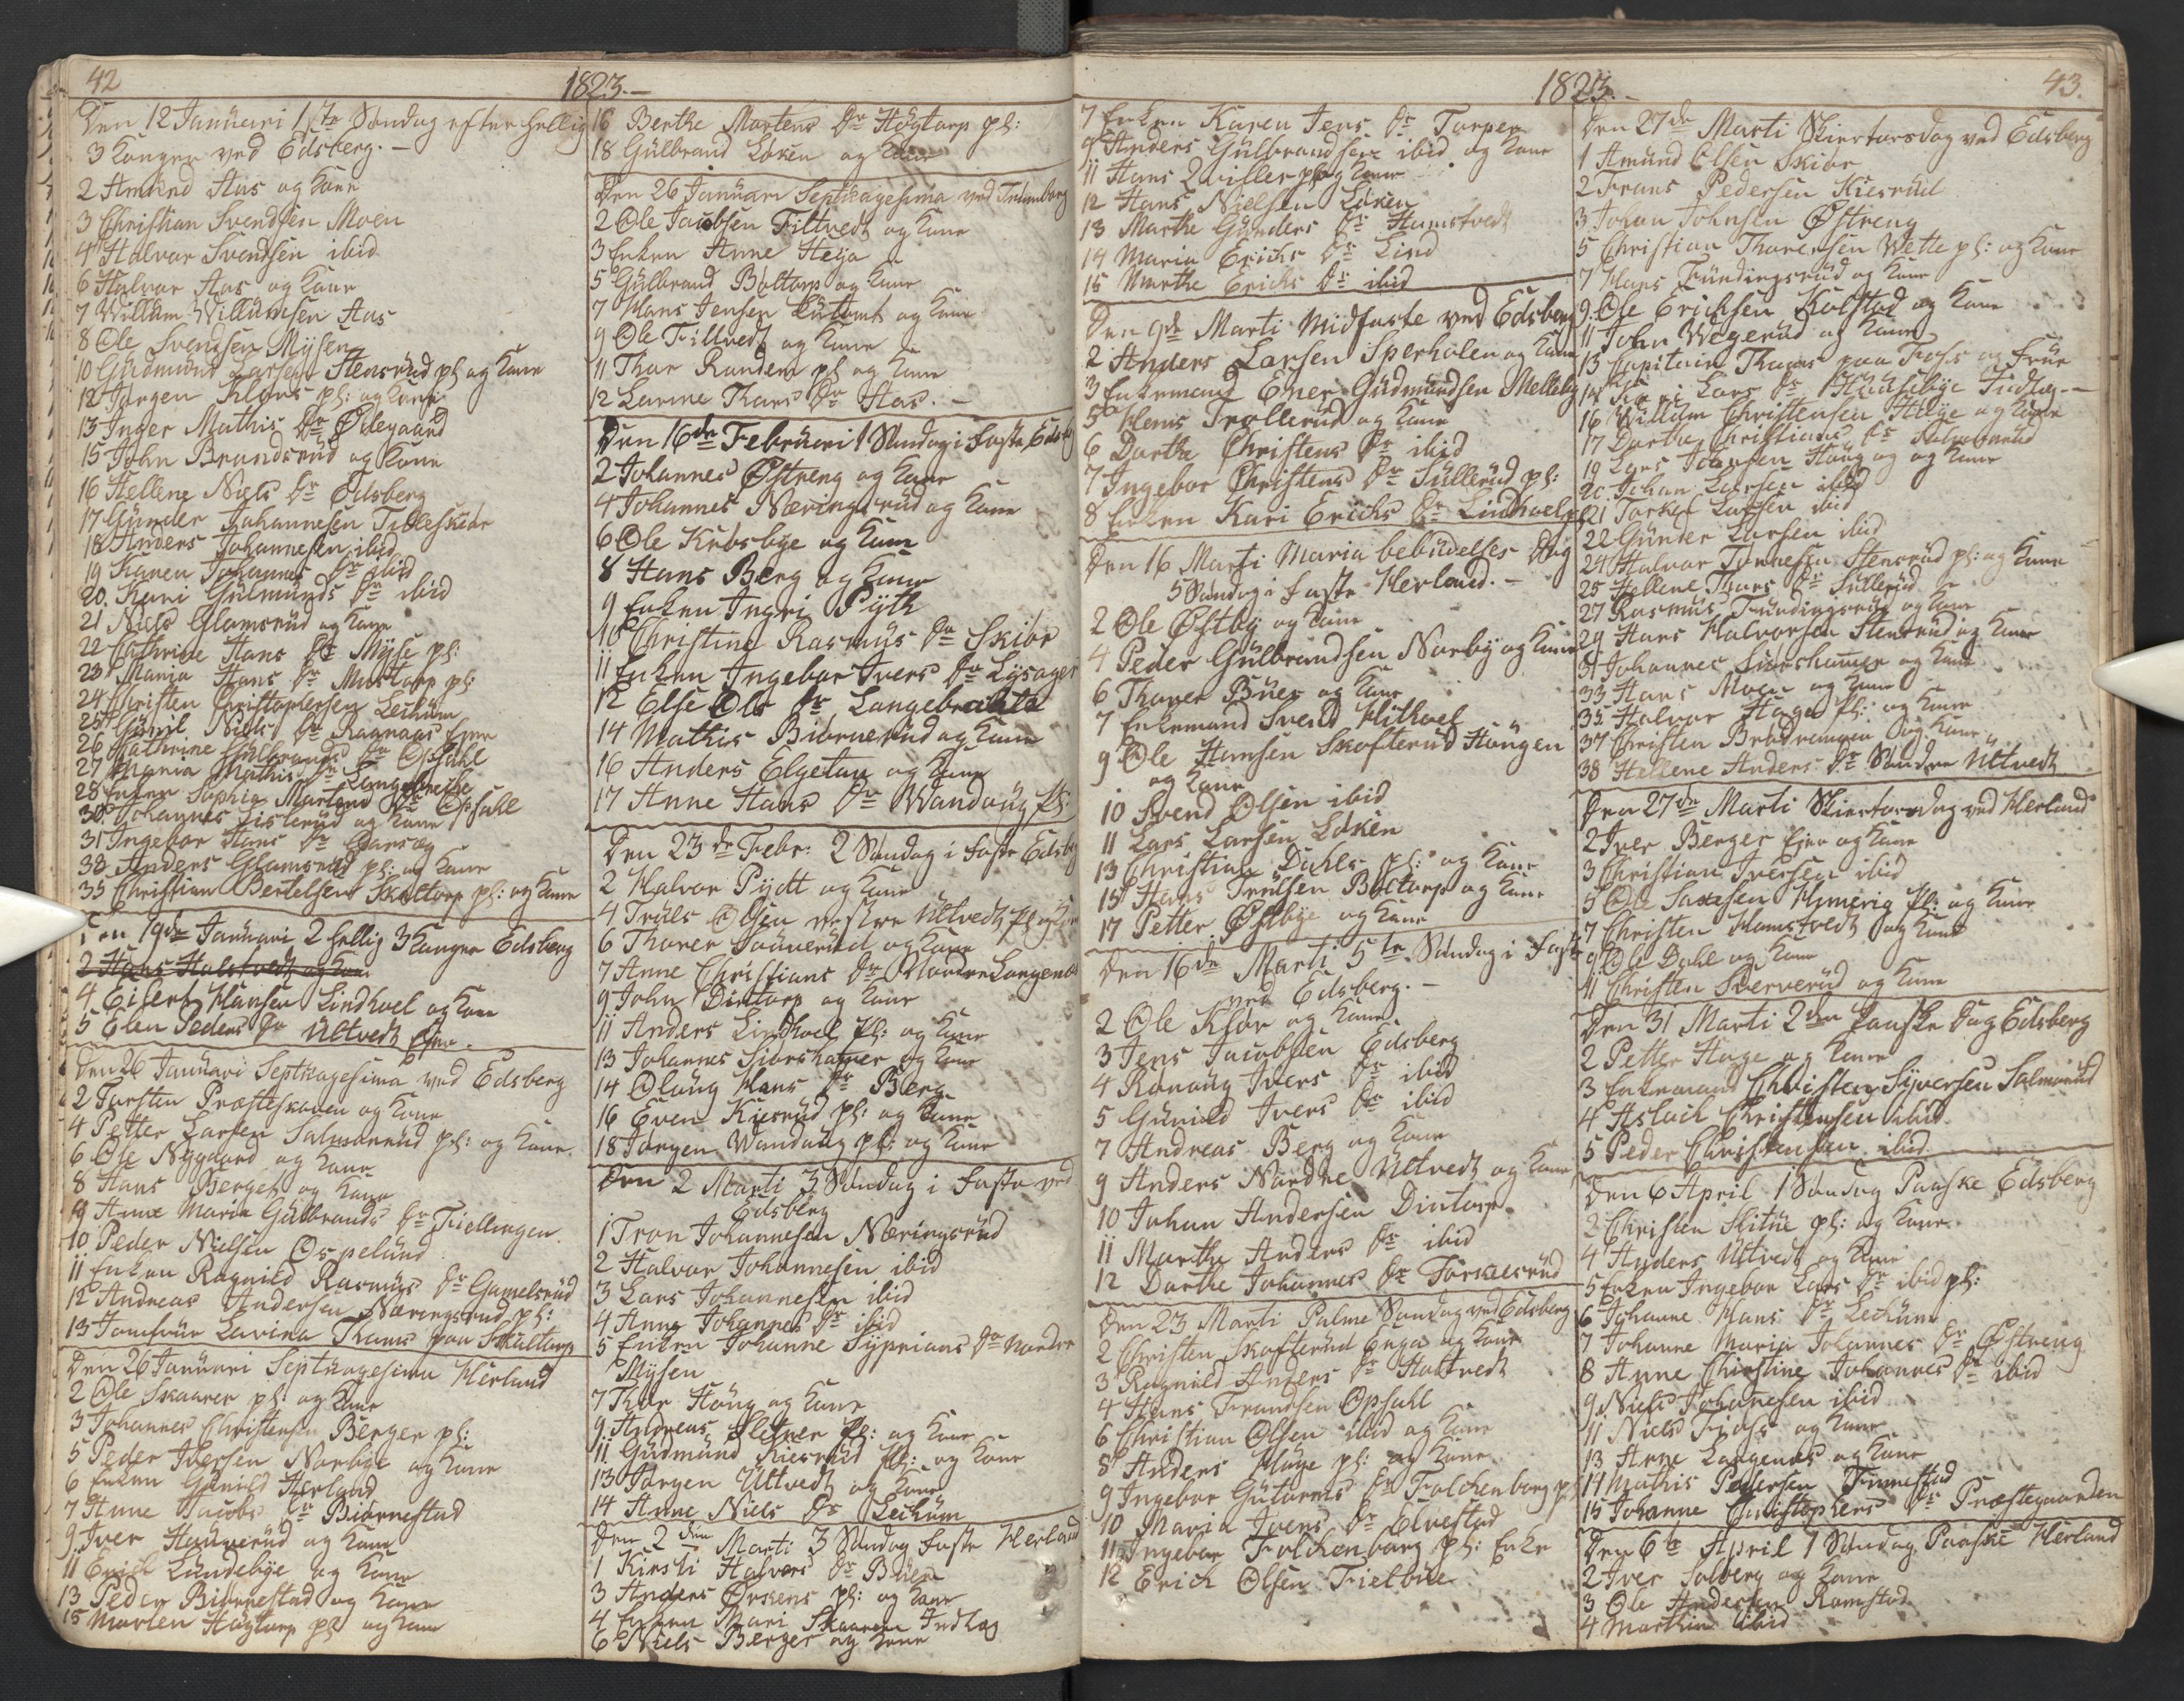 42
1823.-
Den 12 Januari 1ste Søndag efter Hellig
3 Konger ved Edsberg.-
2 Amund Aas og Kone
3 Christian Svendsen Moen
4 Halvor Svendsen ibid
6 Halvor Aas og Kone
7 Willum Willumsen Aas
8 Ole Svendsen Mysen
10 Gudmund Larsen Stensrud pl og Kone
12 Jørgen Kløes pl: og Kone
13 Inger Mathis Dr Ødegaard
15 John Brandsrud og Kone
16 Hellene Niels Dr Edsberg
17 Gunder Johannesen Titleskiør
18 Anders Johannesen ibid
19 Karen Johannes Dr ibid
20. Kari Gulmunds Dr ibid
21 Niels Glamsrud og Kone
22 Cathrine Hans Dr Myse pl:
23 Maria Hans Dr Mustorp pl:
24 Christen Christophersen Lechum
25 Gunil Niels Dr Ragnaas Ejer
26 Cathrine Gulbrands Dr Opsahl
27 Maria Mathis Dr Langebrække
28 Enken Sophia Martens Dr Opsahl
30. Johannes Lislerud og Kone
31 Ingebor Hans Dr
33 Anders Glamsrud pl: og Kone
35 Christian Bertelsen Skaltorp pl: og Kone
Den 19de Januari 2 Hellig 3 Konger Edsberg
2 Hans Halstvedt og Kone
4 Eilert Hansen Lindhoel og Kone
5 Elen Peders Dr Ultvedt Ejer.
Den 26 Januari Septuagesima ved Edsberg
2 Torsten Præsteskoven og Kone
4 Petter Larsen Salmonrud pl: og Kone.
6 Ole Nygaard og Kone
8 Hans Berget og Kone
9 Anne Maria Gulbrands Dr Fiellingen.
10 Peder Nielsen Ospelund
11 Enken Ragnild Rasmus Dr Gamelsrud
12 Andreas Andersen Næringsrud pl:
13 Jomfrue Lavina Thams paa Skaltorp
Den 26 Januari Septuagesima Herland
2 Ole Skaarer pl: og Kone
3 Johannes Christensen Berger pl:
5 Peder Iversen Norbye og Kone
6 Enken Gunild Herland
7 Anne Jacobs Dr Biørnestad
9. Iver Haneverud og Kone
11 Erich Lundebye og Kone
13 Peder Biørnestad og Kone
15 Morten Høgtorp pl og Kone
16 Berthe Mortens Dr Høgtorp pl:
18 Gulbrand Løken og Kone
Den 26 Januari Septuagesima ved Trømborg
2 Ole Jacobsen Fittvedt og Kone
3 Enken Anne Heya
5 Gulbrand Bøltorp og Kone
7 Hans Jensen og Kone
9 Ole Fillvedt og Kone
11 Thor Randem pl og Kone
12 Larine Thors Dr Aas.-
Den 16de Februari 1 Søndag i Faste Edsb
2 Johannes Østreng og Kone
4 Johannes Næringsrud og Kone
6 Ole Krosbye og Kone
8 Hans Berg og Kone
9 Enken Ingri Pyth
10 Christine Rasmus Dr Skiør
11 Enken Ingebor Ivers Dr Lysager
12 Else Ols Dr Langebrække
14 Mathis Biørnerud og Kone
16 Anders Elgetun og Kone
17 Anne Hans Dr Wandaug pl:
Den 23de Febr: 2 Søndag i Faste Edsb
2 Halvor Pydt og Kone
4 Truls Olsen vestre Ultvedt pl og Kone
6 Thorer Saunerud og Kone
7 Anne Christians Dr Nordre Langenæs
9 John Dintorp og Kone
11 Anders Lindhoel pl: og Kone
13 Johannes Siørshamer og Kone
14 Olaug Hans Dr Berg
16 Even Kiesrud pl: og Kone
18 Jørgen Wandaug pl: og Kone
Den 2 Marti 3 Søndag i Faste ved
Edsberg
1 Tron Johannesen Næringsrud
2 Halvor Johannesen ibid
3 Lars Johannesen ibid
4 Anne Johannes Dr ibid
5 Enken Johanne Syprians Dr Nordre
Mysen
7 Thor Haug og Kone
9. Andreas Sletner pl: og Kone
11 Gudmund Kiesrud pl: og Kone
13 Jørgen Ultvedt og Kone
14 Anne Niels Dr Lechum
Den 2den Marti 3 Søndag Faste Herland
1 Kirsti Halvors Dr Buer
3 Anders Ørskens pl: og Kone
4 Enken Mari Skaaren Indlæg
6 Niels Berger og Kone
1823.-
43.
7 Enken Karen Jens Dr Torper
9 Anders Gulbrandsen ibid og Kone
11 Hans Qviller pl og Kone
12 Hans Nielsen Løken
13 Marthe Gunders Dr Hamstvedt
14 Maria Erichs Dr Lind
15 Marthe Erichs Dr ibid
Den 9de Marti Midfaste ved Edsberg
2 Anders Larsen Sperholen og Kone
3 Enkemand Ener Gudmundsen Melleby
5 Hans Trollerud og Kone
6 Dorthe Christens Dr ibid
7 Ingebor Christens Dr Sullerud pl:
8 Enken Kari Erichs Dr Lindhoel pl
Den 16 Marti Maria bebudelses Dag
5 Søndag i Faste Herland.-
2 Ole Østby og Kone
4 Peder Gulbrandsen Norby og Kone
6 Thorer Buer og Kone
7 Enkemand Svend Hithoel
9 Ole Hansen Skofterud Haugen
og Kone
10 Svend Olsen ibid
11 Lars Larsen Løken
13 Christian Dahler pl: og Kone
15 Hans Trulsen Bøltorp og Kone
17 Petter Østbye og Kone
Den 16de Marti 5te Søndag i Faste
ved Edsberg.-
2 Ole Kløv og Kone
3 Jens Jacobsen Edsberg
4 Ranaug Ivers Dr ibid
5 Gunild Ivers Dr ibid
7 Andreas Berg og Kone
9 Anders Nordre Ultvedt og Kone
10 Johan Andersen Dintorp
11 Marthe Anders Dr ibid
12 Dorthe Johannes Dr Torkelsrud
Den 23 Marti Palme Søndag ved Edsberg
2 Christen Skofterud Enga og Kone
3 Ragnild Anders Dr Haltvedt
4 Hans Frandsen Opsahl
6 Christian Olsen ibid og Kone
8 Anders Hage pl: og Kone
9 Ingebor Gutorms Dr Folchenborg pl
10 Maria Ivers Dr Elvestad
11 Ingebor Folchenborg pl: Enke
12 Erich Olsen Fielbue
Den 27de Marti Skiertorsdag ved Edsberg
1 Amund Olsen Skiør
2 Frans Pedersen Kiesrud
3 Johan Johnsen Østreng
5 Christian Thoresen Wette pl: og Kone
7 Hans Fundingsrud og Kone
9. Ole Erichsen Kolstad og Kone
11 John Wegerud og Kone
13 Capitain Thams paa Foss og Frue
14 Kari Lars Dr Huusebye Indlæg-
16 Willum Christensen Helye og Kone
17 Dorthe Christians Dr Salmonrud
19 Lars Johnsen Haug og Kone
20 Johan Larsen ibid
21 Torkel Larsen ibid
22 Gunder Larsen ibid
24 Halvor Tønnesen Stensrud pl: og Kone
25 Hellene Thors Dr Sullerud
27 Rasmus Fundingsrud og Kone
29 Hans Halvorsen Stensrud og Kone
31 Johannes Siørshamer og Kone
33 Hans Moen og Kone
35 Halvor Hagen pl: og Kone
37 Christen Brødremoen og Kone
38 Hellene Anders Dr Søndre Ultvedt
Den 27de Marti Skiertorsdag ved Herland
2 Iver Berger Ejer og Kone
3 Christian Iversen ibid
5 Ole Saxesen Hymerig pl: og Kone
7 Christen Hamstvedt og Kone
9 Ole Dahl og Kone
11 Christen Sververud og Kone
Den 31 Marti 2den Paaske Dag Edsberg
2 Petter Hage og Kone
3 Enkemand Christen Syversen Salmonrud
4 Aslach Christensen ibid
5 Peder Christensen ibid
Den 6 April 1 Søndag Paaske Edsberg
2 Christen Slitue pl: og Kone.
4 Anders Ultvedt og Kone
5 Enken Ingebor Lars Dr ibid pl:
6 Johanne Hans Dr Lechum
7 Johanne Maria Johannes Dr Østreng
8 Anne Christine Johannes Dr ibid
9. Niels Johannesen ibid
11 Niels Fioss og Kone
13 Arne Langenæs og Kone
14 Mathis Pedersen Finnestad
15 Johanne Christophers Dr Præstegaarden
Den 6te April 1 Søndag Paaske Herland
2 Iver Solberg og Kone
3 Ole Andersen Ramstad
4 Marthin ibid